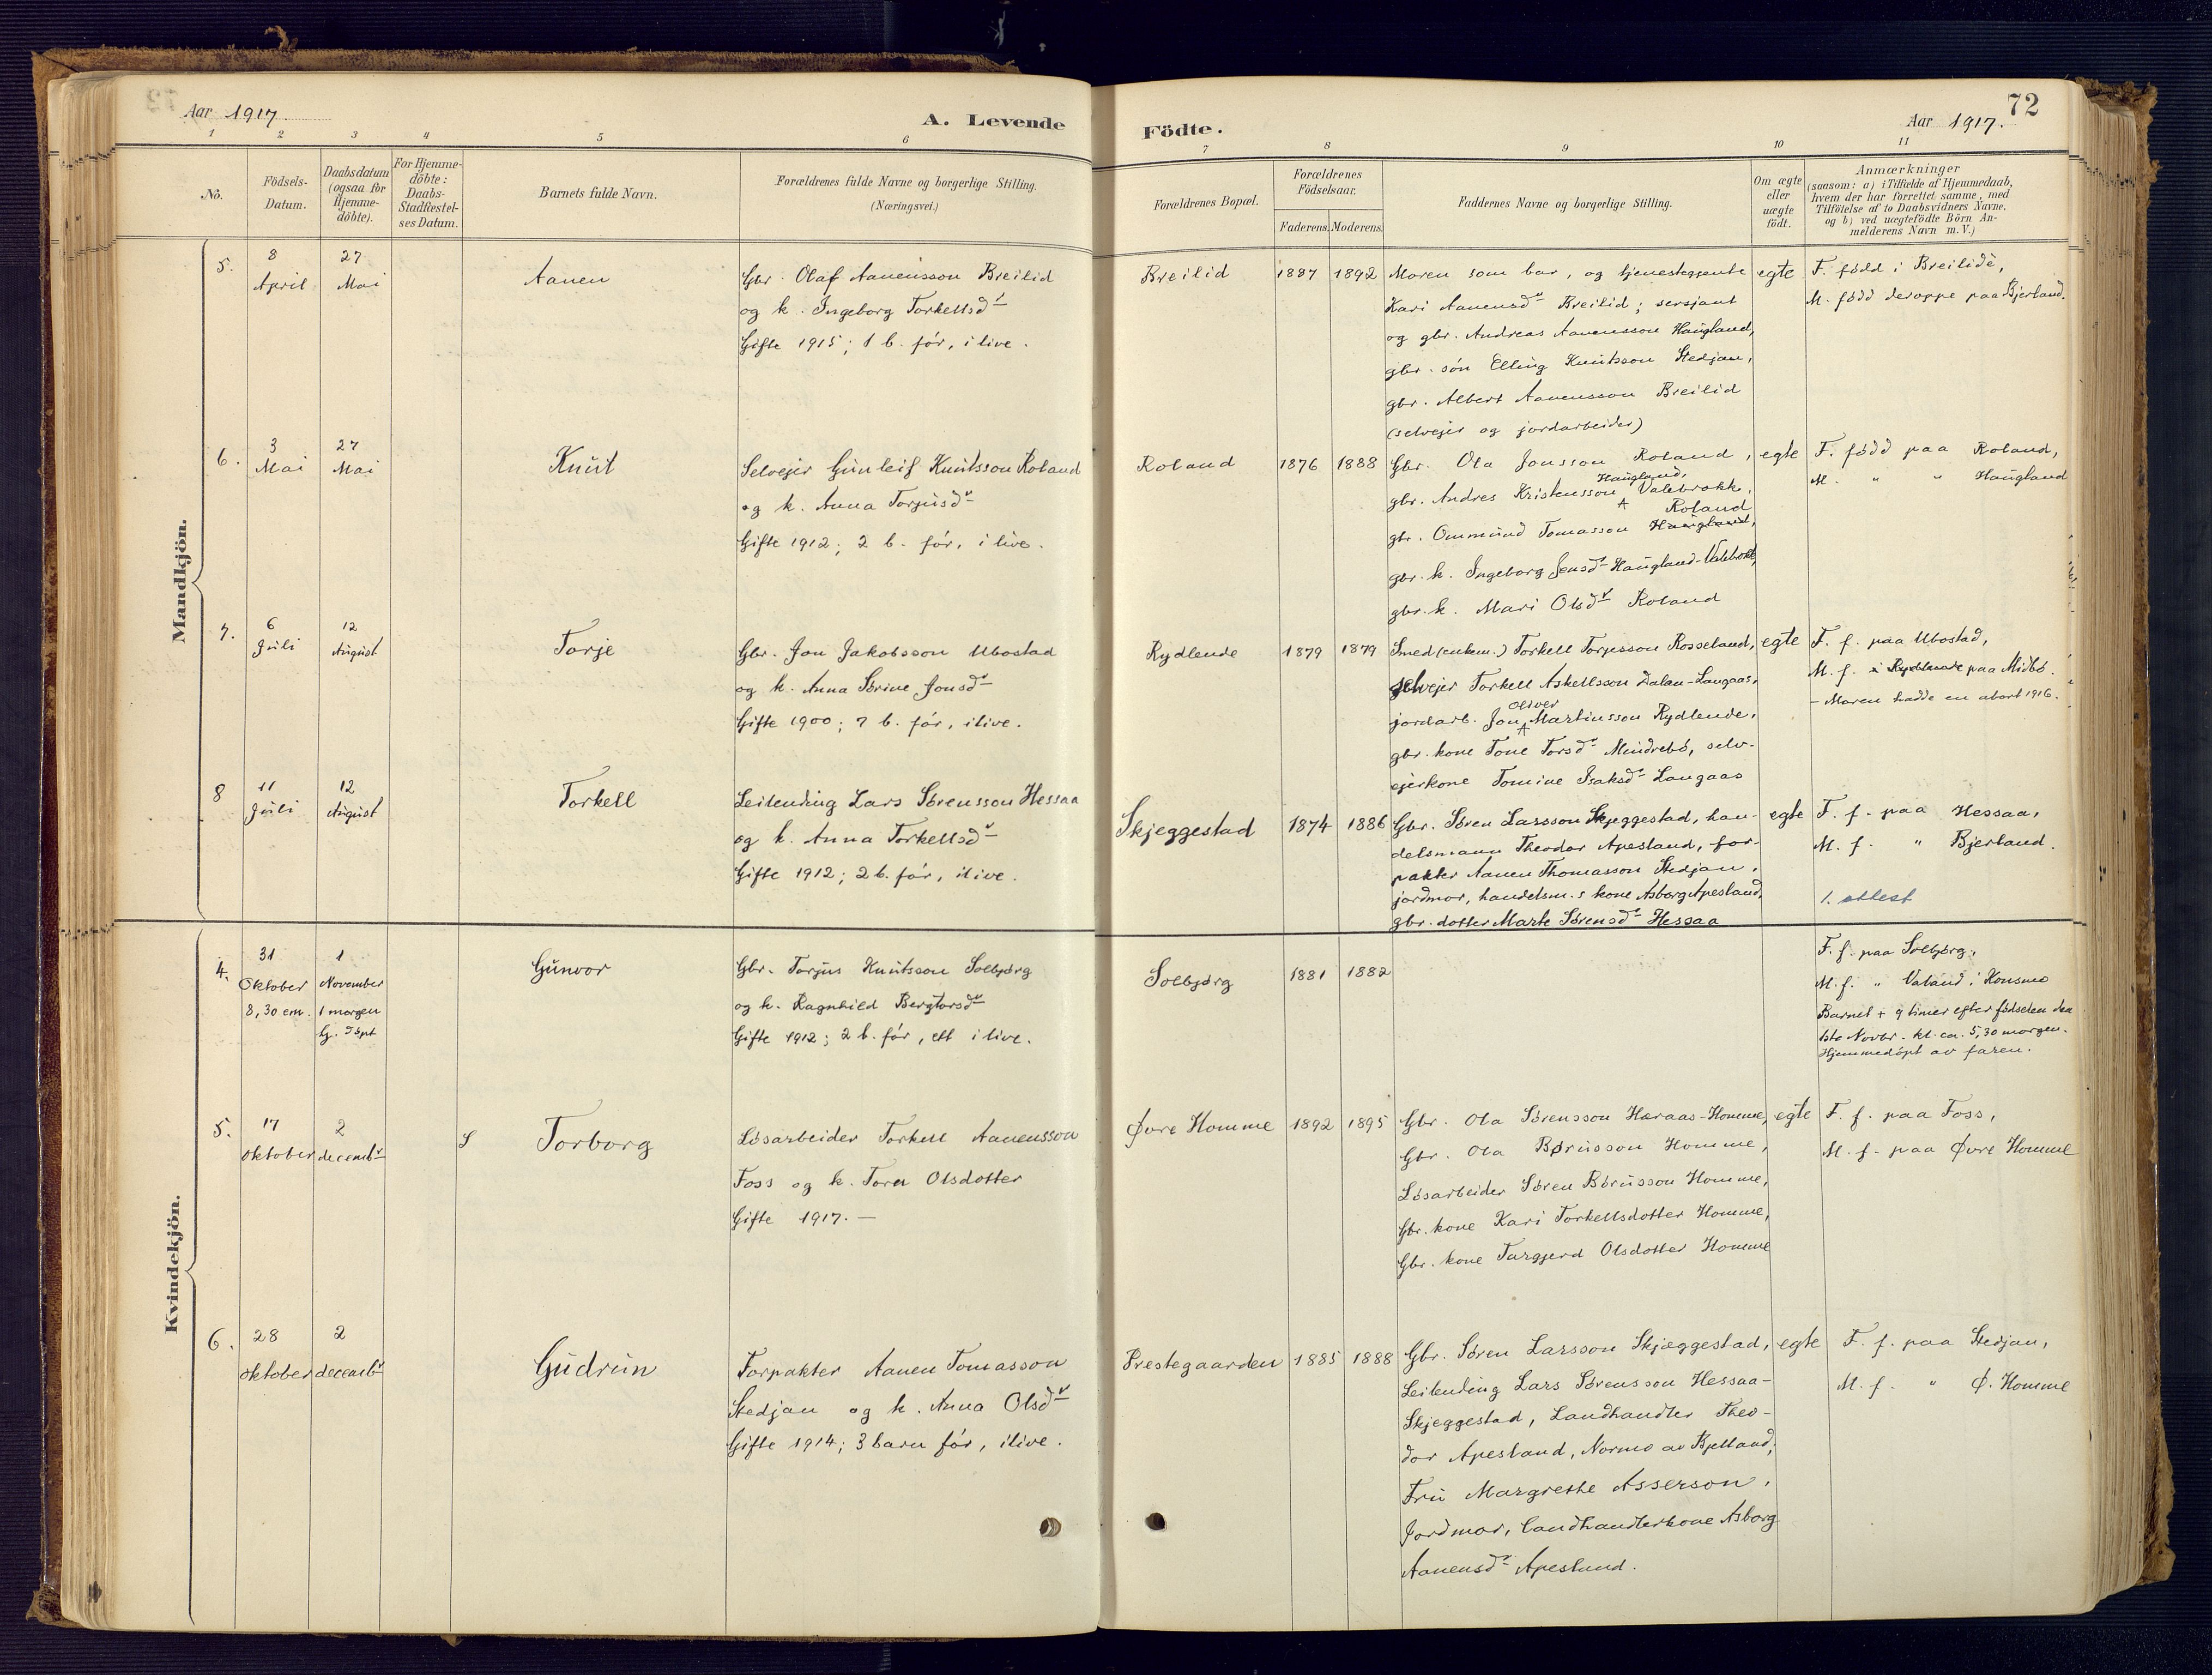 Aar 1917.
A. Levende
Födte.
Aar 1917.
72
1 2 3 4 5 6 7 8 9 10 11
No.
Födsels-
Datum.
Daabsdatum
(ogsaa for
Hjemme-
döbte).
For Hjemme-
döbte:
Daabs-
Stadfæstel-
ses Datum.
Barnets fulde Navn.
Forældrenes fulde Navne og borgerlige Stilling.
(Næringsvei.)
Forældrenes Bopæl.
Forældrenes
Födselsaar.
Faderens. Moderens.
Faddernes Navne og borgerlige Stilling.
Om ægte
eller
uægte
födt.
Anmærkninger
(saasom: a) i Tilfælde af Hjemmedaab,
hvem der har forrettet samme, med
Tilföielse af to Daabsvidners Navne.
og b) ved uægtefödte Börn An-
melderens Navn m. V.)
Mandkjön.
5.
8
April
27
Mai
Aanen
Gbr. Olaf Aanensson Breilid
og k. Ingeborg Torkellsdr
Gifte 1915; 1 b. før, i live.
Breilid
1887
1892
Moren som bar, og tjenestegjente
Kari Aanensdr Breilid; sersjant
og gbr. Andreas Aanensson Haugland,
gbr. søn Elling Knutsson Stedjan,
gbr. Albert Aanensson Breilid
(selveier og jordarbeider)
egte
F. fødd i Breilid,
M. fødd deroppe paa Bjerland.
6.
3
Mai
27
Mai
Knut
Selvejer Gunleif Knutsson Roland
og k. Anna Torjusdr
Gifte 1912; 2 b. før, i live.
Roland
1876
1888
Gbr. Ola Jonsson Roland,
Haugland,
gbr. Andres Kristensson Valebrokk,
Roland
gbr. Ommund Tomasson Haugland,
gbr. k. Ingeborg Jensdr Haugland-Valebrokk,
gbr. k. Mari Olsdr Roland
egte
F. fødd paa Roland,
M. " " Haugland
7.
6
Juli
12
August
Torje
Gbr. Jon Jakobsson Ubostad
og k. Anna Sørine Jonsdr
Gifte 1900; 7 b. før, i live.
Rydlende
1879
1879
Smed (enkem.) Torkell Torjusson Rosseland,
selvejer Torkell Askellsson Dalan-Langaas,
Oliver
jordarb. Jon Martinsson Rydlende,
gbr. kone Tone Torsdr Mindrebø, selv-
ejerkone Tomine Isaksdr Langaas
egte
F. f. paa Ubostad,
M. f. i Rydlende paa Midbø.
- Moren hadde en abort 1916.
8
11
Juli
12
August
Torkell
Leilending Lars Sørensson Hessaa
og k. Anna Torkellsdr
Gifte 1912; 2 b. før, i live.
Skjeggestad
1874
1886
Gbr. Søren Larsson Skjeggestad, han-
delsmann Theodor Apesland, for-
pakter Aanen Thomasson Stedjan,
jordmor, handelsm.s kone Asborg Apesland,
gbr. dotter Marte Sørensdr Hessaa
egte
F. f. paa Hessaa,
M. f. " Bjerland.
1. attest
Kvindekjön.
4.
31
Oktober
8,30 em.
1
November
1 morgen
hj. døpt
Gunvor
Gbr. Torjus Knutsson Solbjørg
og k. Ragnhild Bergtorsdr
Gifte 1912; 2 b. før, ett i live.
Solbjørg
1881
1882
F. f. paa Solbjørg,
M. f. " Valand i Konsmo
Barnet + 9 timer efter fødselen den
1ste Novbr. kl. ca. 5,30 morgen.
Hjemmedøpt av faren.
5.
17
oktober
2
decembr
S
Torborg
Løsarbeider Torkell Aanensson
Foss og k. Tora Olsdotter
Gifte 1917. —
Øvre Homme
1892
1895
Gbr. Ola Sørensson Høraas-Homme,
Gbr. Ola Børusson Homme,
Løsarbeider Søren Børusson Homme,
Gbr. kone Kari Torkellsdotter Homme,
Gbr. kone Targjerd Olsdotter Homme
egte
F. f. paa Foss,
M. f. paa Øvre Homme
6.
28
oktober
2
decembr
Gudrun
Forpakter Aanen Tomasson
Stedjan og k. Anna Olsdr
Gifte 1914; 3 barn før, i live.
Prestegaarden
1885
1888
Gbr. Søren Larsson Skjæggestad,
Leilending Lars Sørensson Hessaa-
Skjeggestad, Landhandler Theo-
dor Apesland, Normo av Bjelland,
Fru Margrethe Asserson,
Jordmor, landhandlerkone Asborg
Aanensdr Apesland.
egte
F. f. paa Stedjan,
M. f. " Ø. Homme